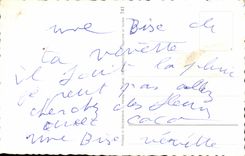 une Bise de
la vévette
il fait la pluie
je peut pas aller
chercher des fleurs
une Bise vévette